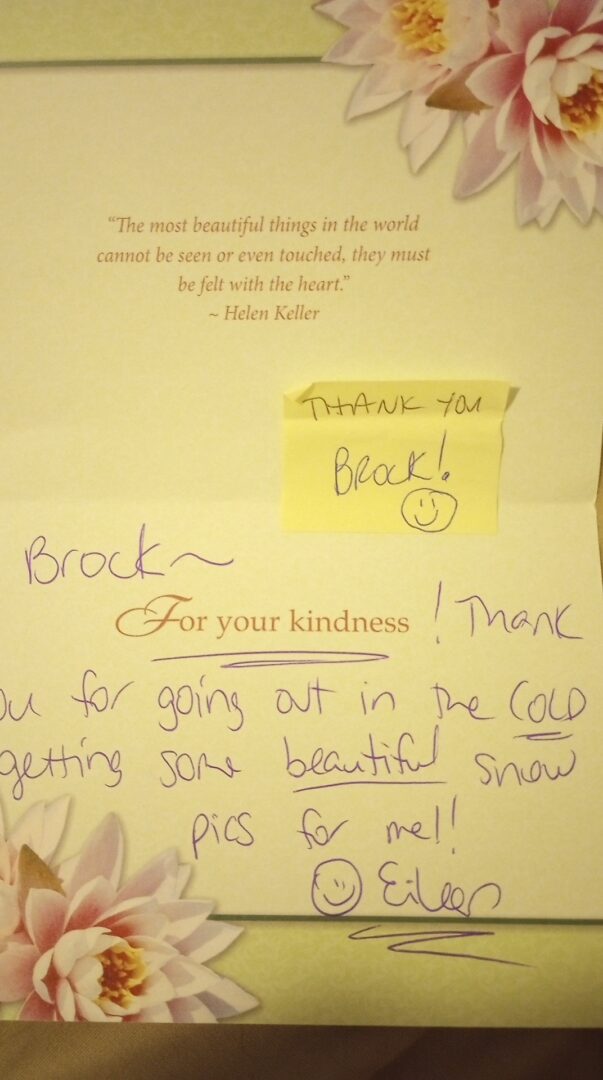 “The most beautiful things in the world
cannot be seen or even touched, they must
be felt with the heart.”
~ Helen Keller
THANK YOU
BROCK!
Brock~
For your kindness ! Thank
ou for going out in the COLD
getting some beautiful snow
pics for me!!
Eileen